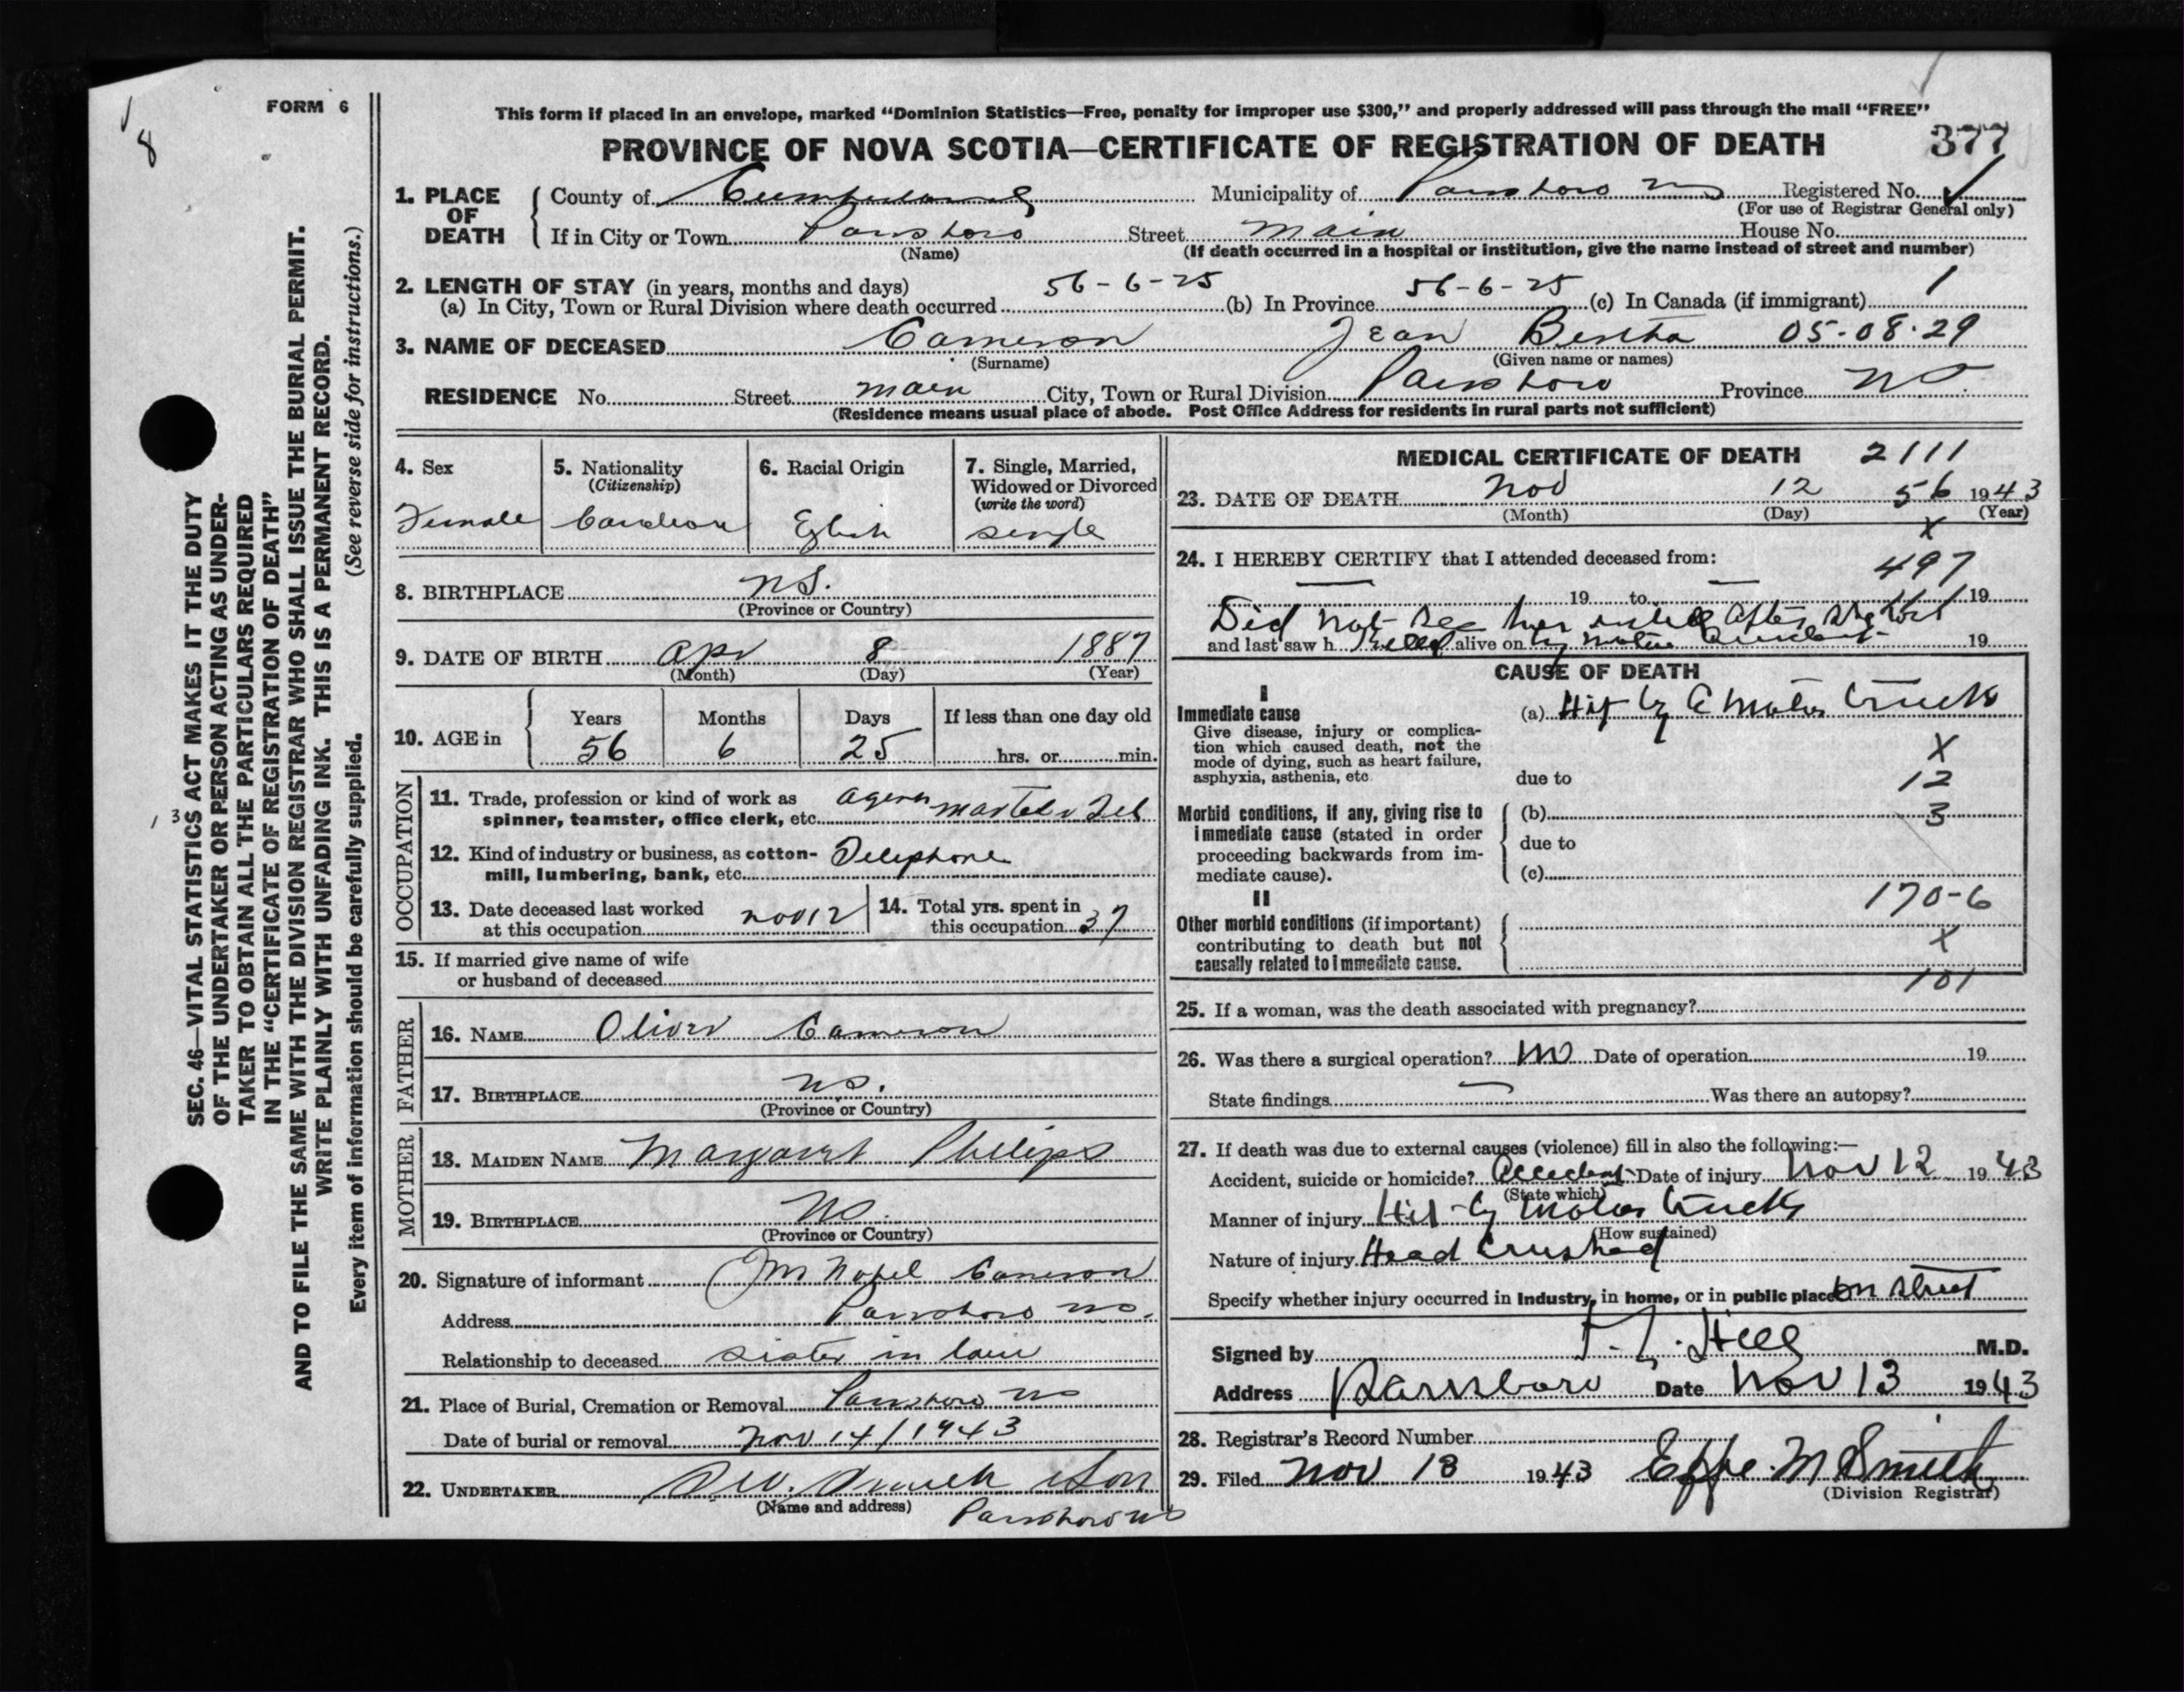 FORM 6
8
This form if placed in an envelope, marked “Dominion Statistics—Free, penalty for improper use $300,” and properly addressed will pass through the mail “FREE”
PROVINCE OF NOVA SCOTIA—CERTIFICATE OF REGISTRATION OF DEATH
377
1. PLACE OF DEATH
County of Cumberland Municipality of Parrsboro NS Registered No.
(For use of Registrar General only)
If in City or Town Parrsboro Street Main House No.
(Name) (If death occurred in a hospital or institution, give the name instead of street and number)
2. LENGTH OF STAY (in years, months and days)
(a) In City, Town or Rural Division where death occurred 56-6-25 (b) In Province 56-6-25 (c) In Canada (if immigrant) 1
3. NAME OF DECEASED Cameron Jean Bertha 05-08-29
(Surname) (Given name or names)
RESIDENCE No. Street Main City, Town or Rural Division Parrsboro Province NS.
(Residence means usual place of abode. Post Office Address for residents in rural parts not sufficient)
4. Sex
Female
5. Nationality
(Citizenship)
Canadian
6. Racial Origin
Eglish
7. Single, Married,
Widowed or Divorced
(write the word)
single
8. BIRTHPLACE NS.
(Province or Country)
9. DATE OF BIRTH Apr 8 1887
(Month) (Day) (Year)
10. AGE in
Years Months Days If less than one day old
56 6 25 hrs. or min.
OCCUPATION
11. Trade, profession or kind of work as
spinner, teamster, office clerk, etc. Agent Mar Tel & Tel
12. Kind of industry or business, as cotton-
mill, lumbering, bank, etc. Telephone
13. Date deceased last worked
at this occupation Nov 12
14. Total yrs. spent in
this occupation 37
15. If married give name of wife
or husband of deceased
FATHER
16. NAME Oliver Cameron
17. BIRTHPLACE NS.
(Province or Country)
MOTHER
18. MAIDEN NAME Margaret Philips
19. BIRTHPLACE NS.
(Province or Country)
20. Signature of informant Cameron
Address Parrsboro NS.
Relationship to deceased sister in law
21. Place of Burial, Cremation or Removal Parrsboro NS
Date of burial or removal Nov 14/1943
22. UNDERTAKER & Son
(Name and address) Parrsboro NS
MEDICAL CERTIFICATE OF DEATH 2111
23. DATE OF DEATH Nov 12 56 1943
(Month) (Day) (Year)
X
24. I HEREBY CERTIFY that I attended deceased from:
497
19 to 19
Did not see her until after she was
and last saw h alive on 19
killed by motor accident
CAUSE OF DEATH
I
Immediate cause
Give disease, injury or complica-
tion which caused death, not the
mode of dying, such as heart failure,
asphyxia, asthenia, etc
(a) Hit by a motor truck
X
due to
12
Morbid conditions, if any, giving rise to
immediate cause (stated in order
proceeding backwards from im-
mediate cause).
(b) 3
due to
(c)
II
170-6
Other morbid conditions (if important)
contributing to death but not
causally related to immediate cause.
X
101
25. If a woman, was the death associated with pregnancy?
26. Was there a surgical operation? No Date of operation 19
State findings Was there an autopsy?
27. If death was due to external causes (violence) fill in also the following:—
Accident, suicide or homicide? Accident Date of injury Nov 12 1943
(State which)
Manner of injury Hit by motor truck
(How sustained)
Nature of injury Head crushed
Specify whether injury occurred in Industry, in home, or in public place on street
Signed by Hill M.D.
Address Parrsboro Date Nov 13 1943
28. Registrar's Record Number
29. Filed Nov 13 1943 Effie M Smith
(Division Registrar)
SEC. 46—VITAL STATISTICS ACT MAKES IT THE DUTY
OF THE UNDERTAKER OR PERSON ACTING AS UNDER-
TAKER TO OBTAIN ALL THE PARTICULARS REQUIRED
IN THE “CERTIFICATE OF REGISTRATION OF DEATH”
AND TO FILE THE SAME WITH THE DIVISION REGISTRAR WHO SHALL ISSUE THE BURIAL PERMIT.
WRITE PLAINLY WITH UNFADING INK. THIS IS A PERMANENT RECORD.
Every item of information should be carefully supplied. (See reverse side for instructions.)